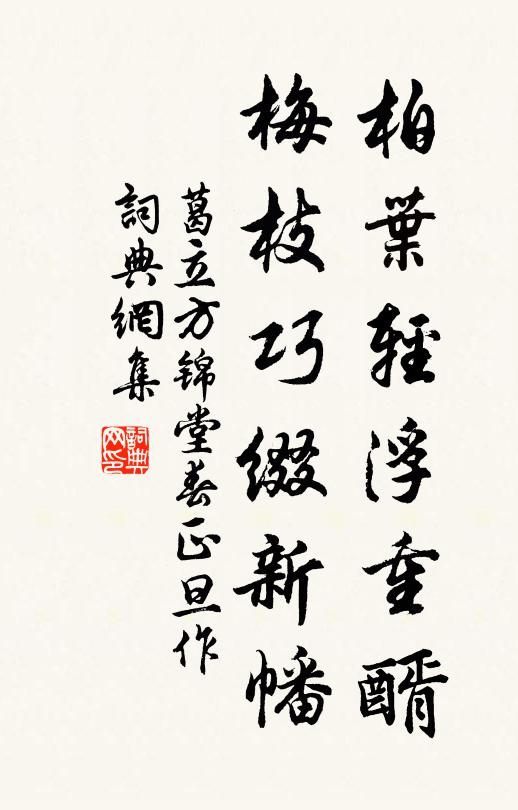 柏葉輕浮重醑
梅枝巧綴新幡
葛立方錦堂春正旦作
詞典網集
詞典網印